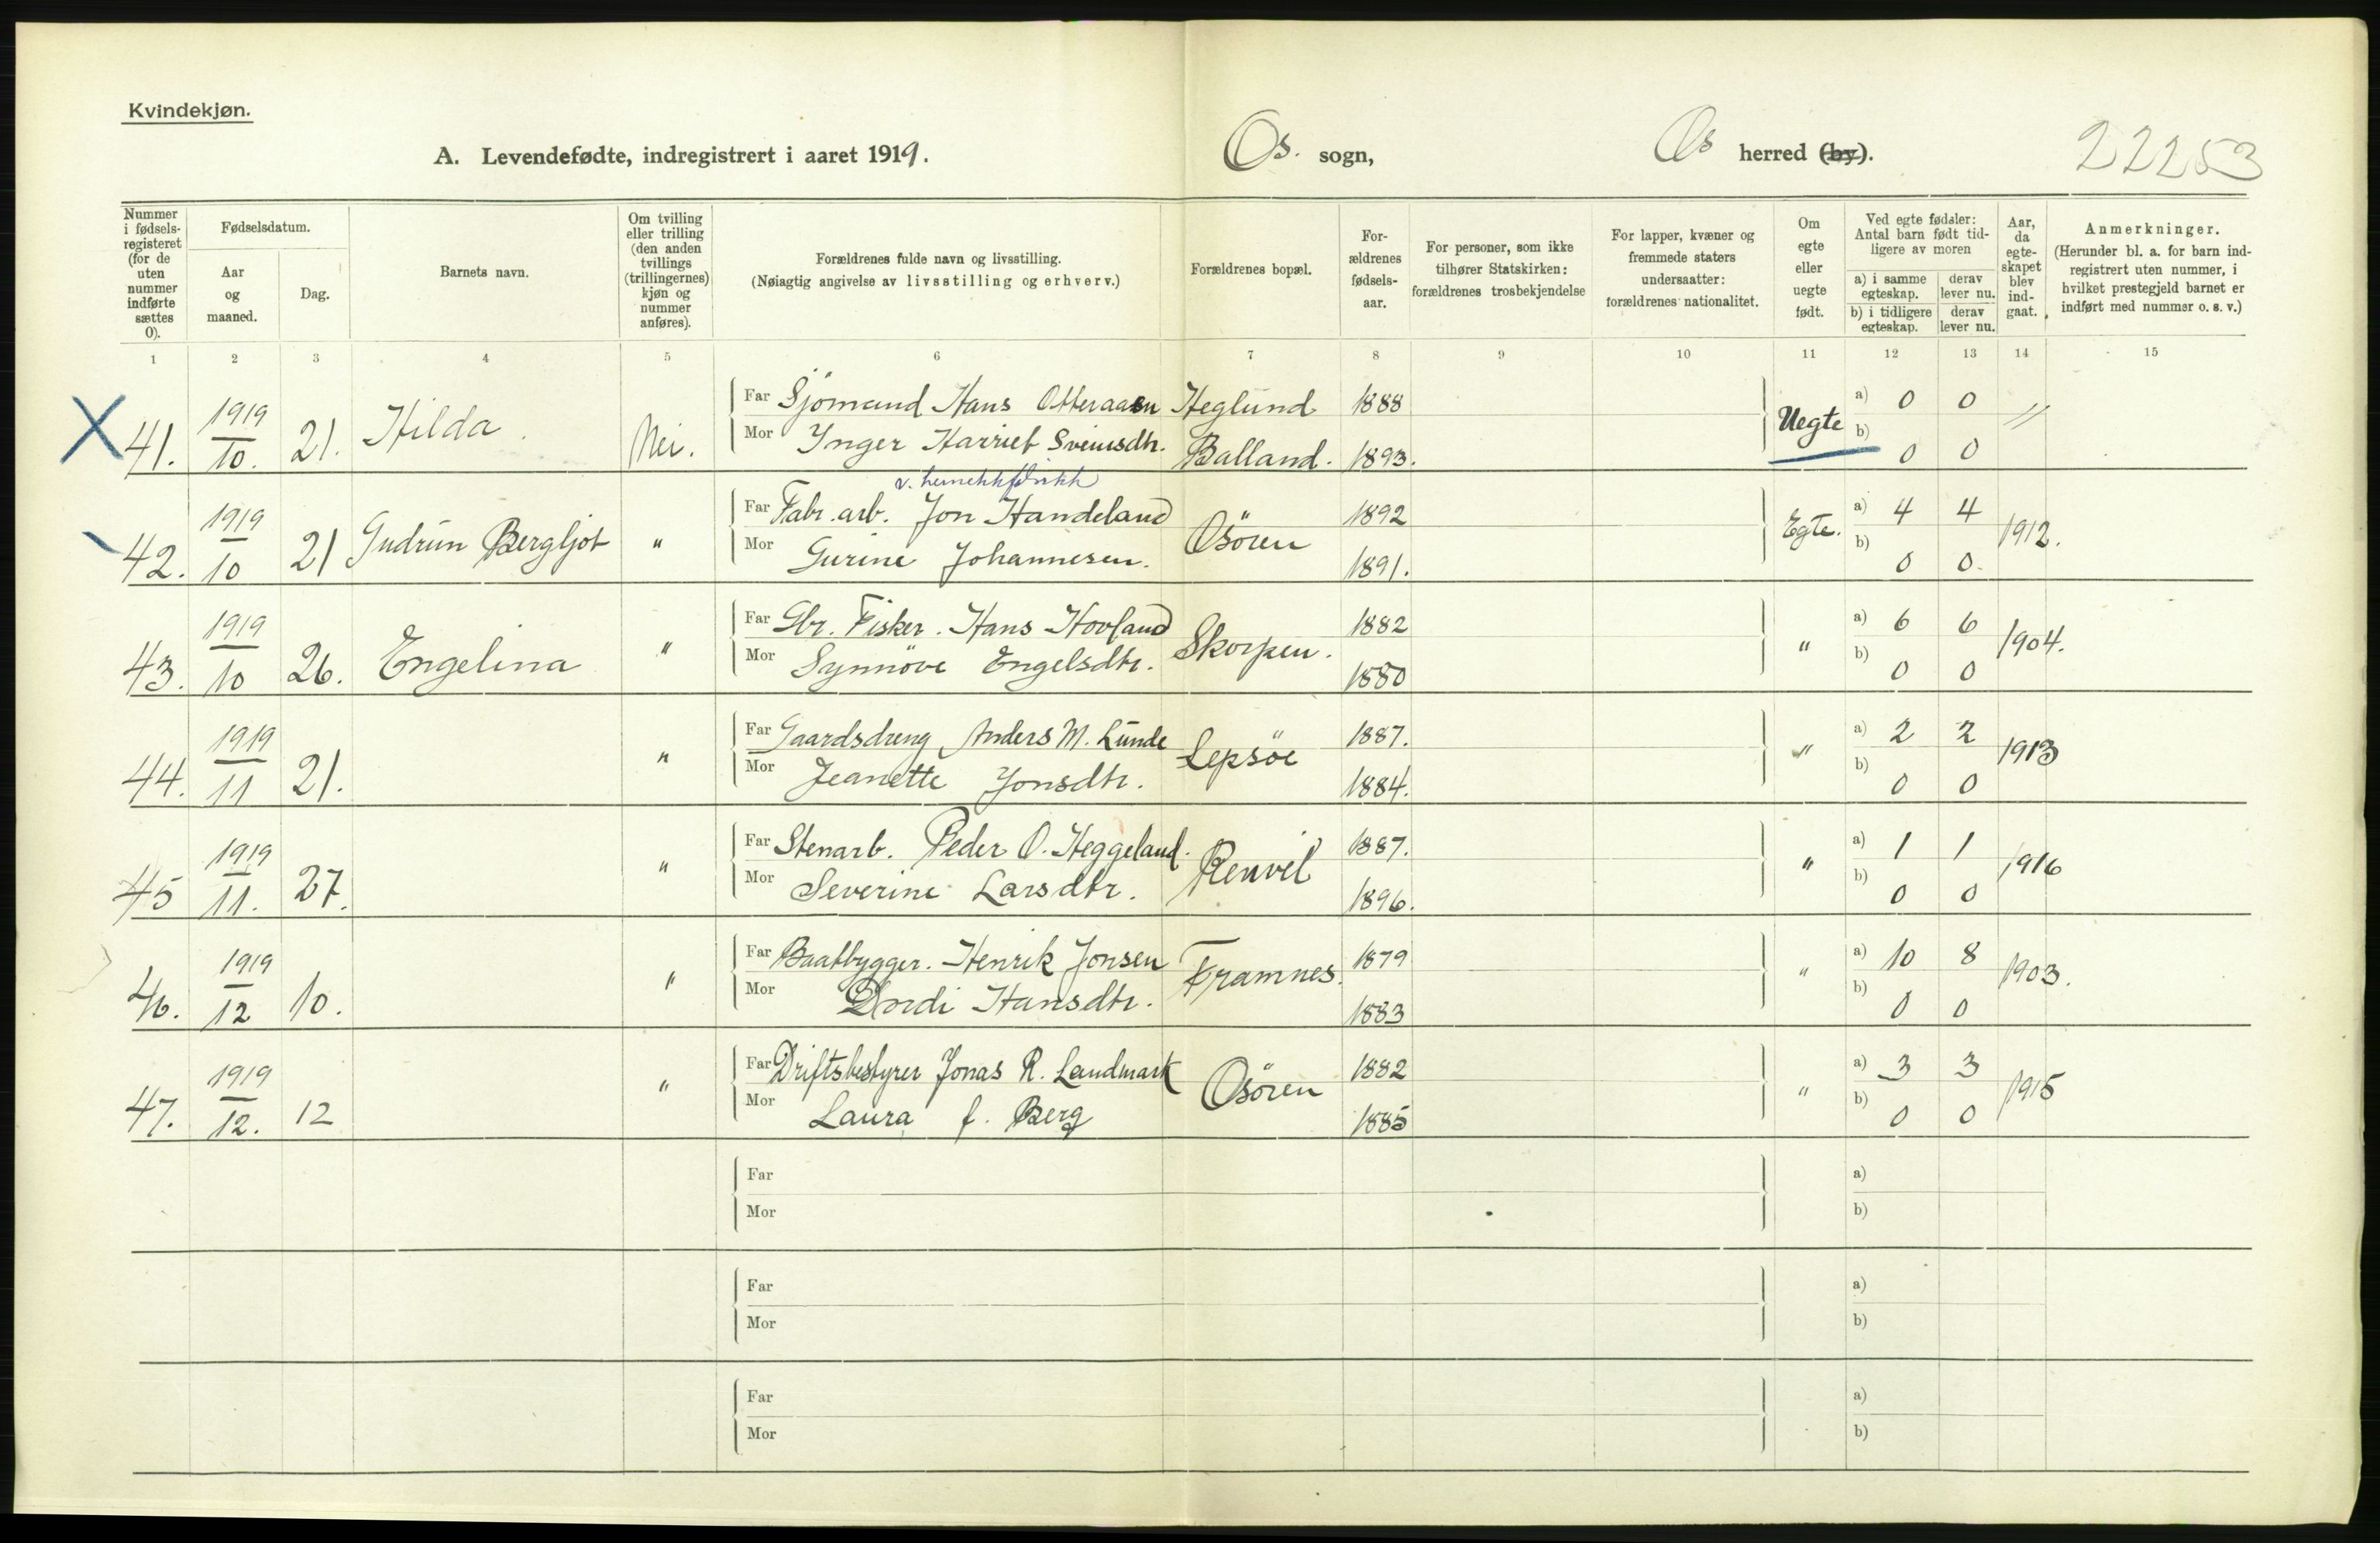 Kvindekjøn.
A. Levendefødte, indregistrert i aaret 1919.
Os. sogn,
Os herred (by).
22253
Nummer i fødsels-registeret (for de uten nummer indførte sættes 0).
Fødselsdatum.
Aar og maaned.
Dag.
Barnets navn.
Om tvilling eller trilling (den anden tvillings (trillingernes) kjøn og nummer anføres).
Forældrenes fulde navn og livsstilling.
(Nøiagtig angivelse av livsstilling og erhverv.)
Forældrenes bopæl.
For-ældrenes fødsels-aar.
For personer, som ikke tilhører Statskirken: forældrenes trosbekjendelse
For lapper, kvæner og fremmede staters undersaatter: forældrenes nationalitet.
Om egte eller uegte født.
Ved egte fødsler: Antal barn født tid-ligere av moren
a) i samme egteskap.
derav lever nu.
b) i tidligere egteskap.
derav lever nu.
Aar, da egte-skapet blev ind-gaat.
Anmerkninger.
(Herunder bl. a. for barn ind-registrert uten nummer, i hvilket prestegjeld barnet er indført med nummer o. s. v.)
1 2 3 4 5 6 7 8 9 10 11 12 13 14 15
X 41. 1919/10. 21. Hilda. Nei. Far Sjömand Hans Otteraaen Heglund 1888 Uegte a) 0 0 "
Mor Inger Harriet Sveinsdtr. Balland. 1893. b) 0 0
42. 1919/10 21 Gudrun Bergljot " Far Fabr. arb. Jon Handeland Osören 1892 Egte. a) 4 4 1912.
Mor Gurine Johannesen. 1891. b) 0 0.
43. 1919/10 26. Engelina " Far Gbr. Fisker. Hans Hovland Skorpen. 1882 " a) 6 6 1904.
Mor Synnöve Engelsdtr. 1880 b) 0 0
44. 1919/11 21. " Far Gaardsdreng Anders M. Lunde Lepsöe 1887. " a) 2 2 1913
Mor Jeanette Jonsdtr. 1884. b) 0 0
45 1919/11. 27. " Far Stenarb. Peder O. Heggeland. Renvel 1887. " a) 1 1 1916
Mor Severine Larsdtr. 1896. b) 0 0
46. 1919/12 10. " Far Baatbygger. Henrik Jonsen Framnes. 1879 " a) 10 8 1903.
Mor Dordi Hansdtr. 1883 b) 0 0
47. 1919/12. 12 " Far Driftsbestyrer Jonas R. Landmark Osören 1882 " a) 3 3 1915
Mor Laura f. Berg 1885 b) 0 0
Far a)
Mor b)
Far a)
Mor b)
Far a)
Mor b)